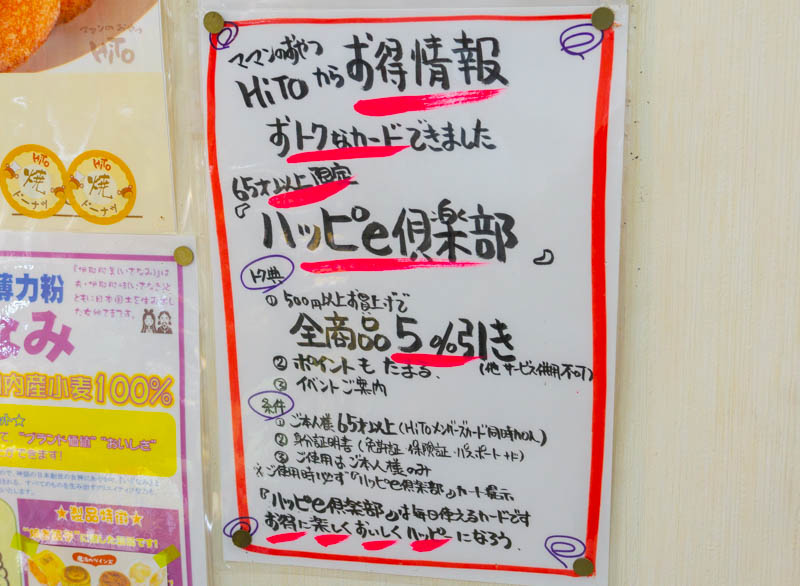 ママンのおやつ
HiTo
HiTo
焼
ドーナツ
HiTo
焼
ドーナツ
薄力粉
なみ
内産小麦100%
"ブランド価値" "おいしさ"
できます!
★製品特徴★
ママンのおやつ
HiToからお得情報
おトクなカードできました
65才以上限定
『ハッピe倶楽部』
トク典
① 500円以上お買上げで
全商品5%引き
(他サービス併用不可)
② ポイントもたまる。
③ イベントご案内
条件
① ご本人様65才以上(HiToメンバーズカード同時加入)
② 身分証明書(免許証・保険証・パスポート等)
③ ご使用はご本人様のみ
※ご使用時必ず『ハッピe倶楽部』カード提示
『ハッピe倶楽部』は毎日使えるカードです
お得に楽しくおいしくハッピーになろう。